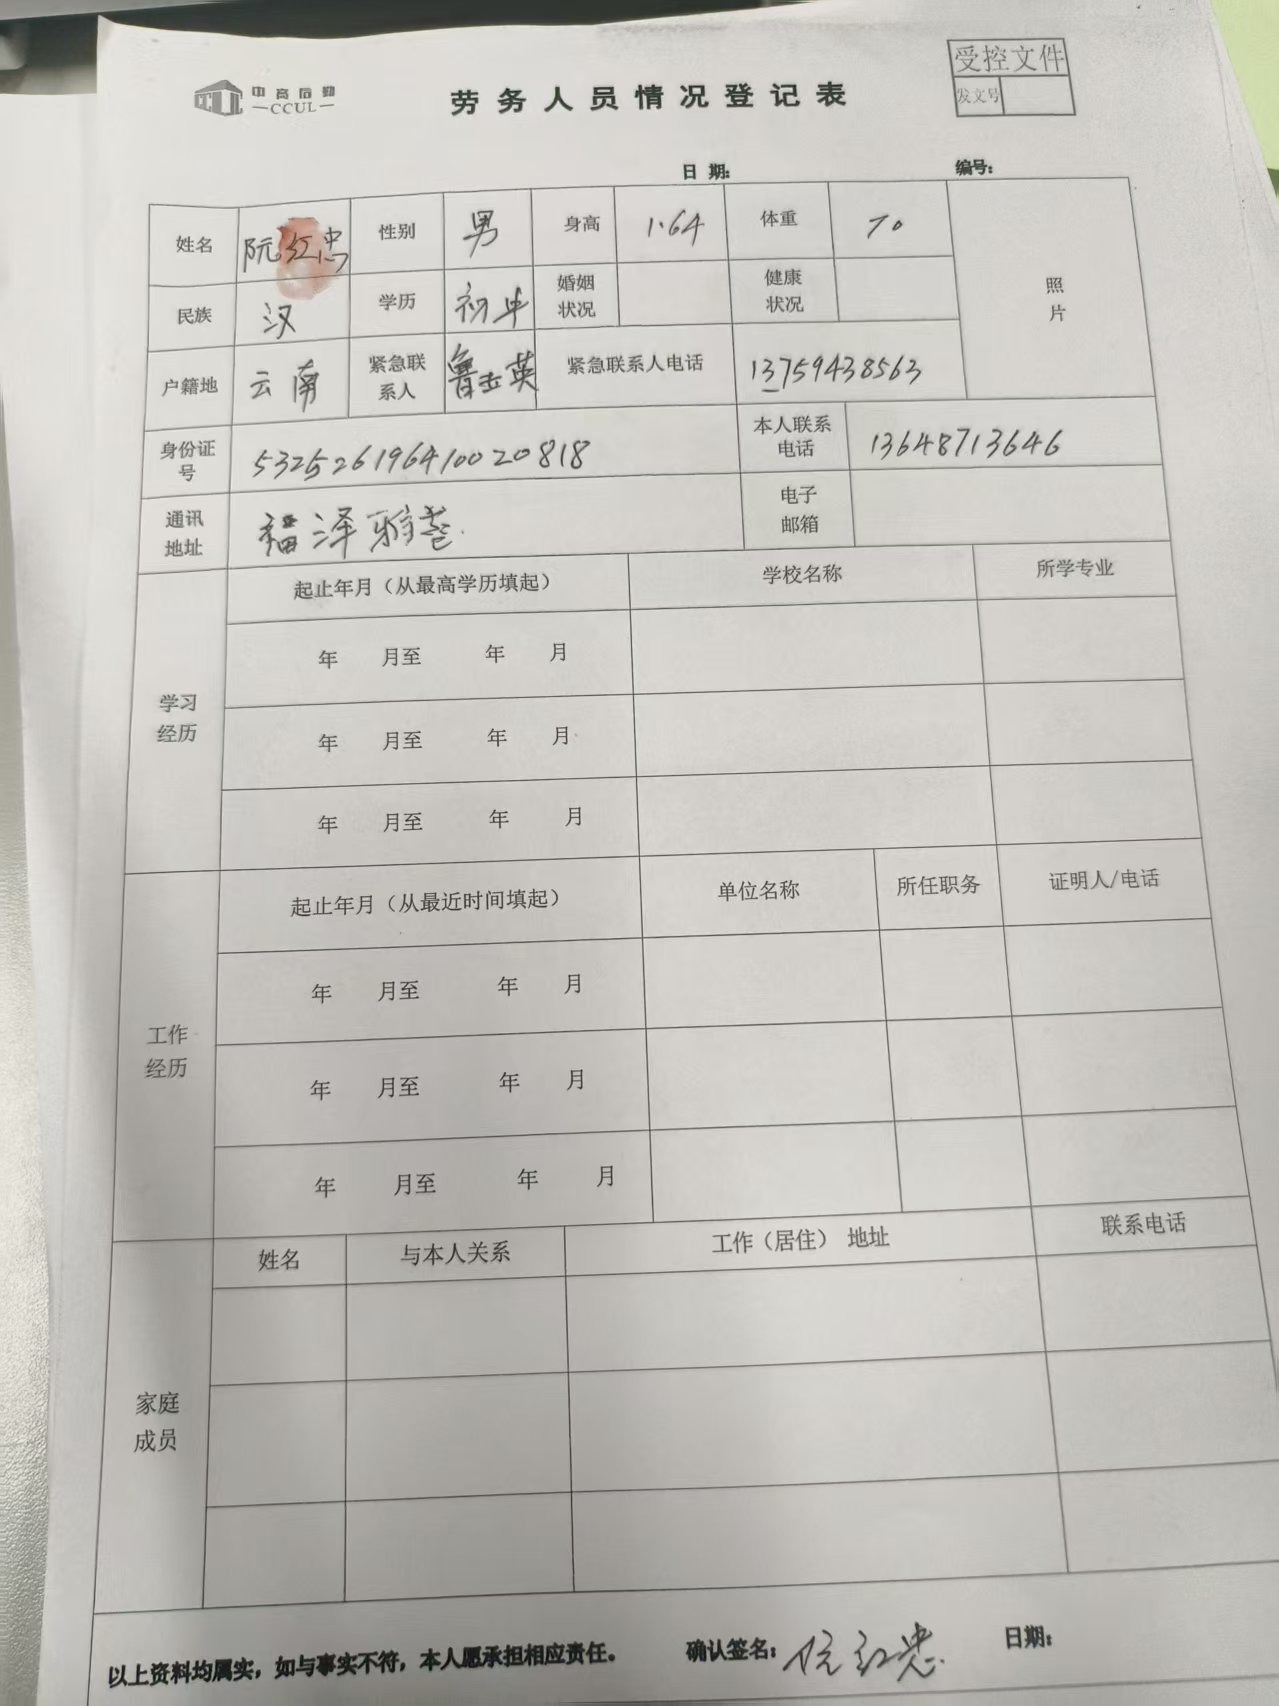 中高后勤
—CCUL—
劳务人员情况登记表
受控文件
发文号
日期:
编号:
姓名 阮红忠 性别 男 身高 1.64 体重 70
照片
民族 汉 学历 初中 婚姻状况 健康状况
户籍地 云南 紧急联系人 鲁 英 紧急联系人电话 13759438563
身份证号 532526196410020818 本人联系电话 13648713646
通讯地址 福泽雅 电子邮箱
学习经历
起止年月（从最高学历填起） 学校名称 所学专业
年 月至 年 月
年 月至 年 月
年 月至 年 月
工作经历
起止年月（从最近时间填起） 单位名称 所任职务 证明人/电话
年 月至 年 月
年 月至 年 月
年 月至 年 月
家庭成员
姓名 与本人关系 工作（居住） 地址 联系电话
以上资料均属实，如与事实不符，本人愿承担相应责任。 确认签名: 阮红忠 日期: